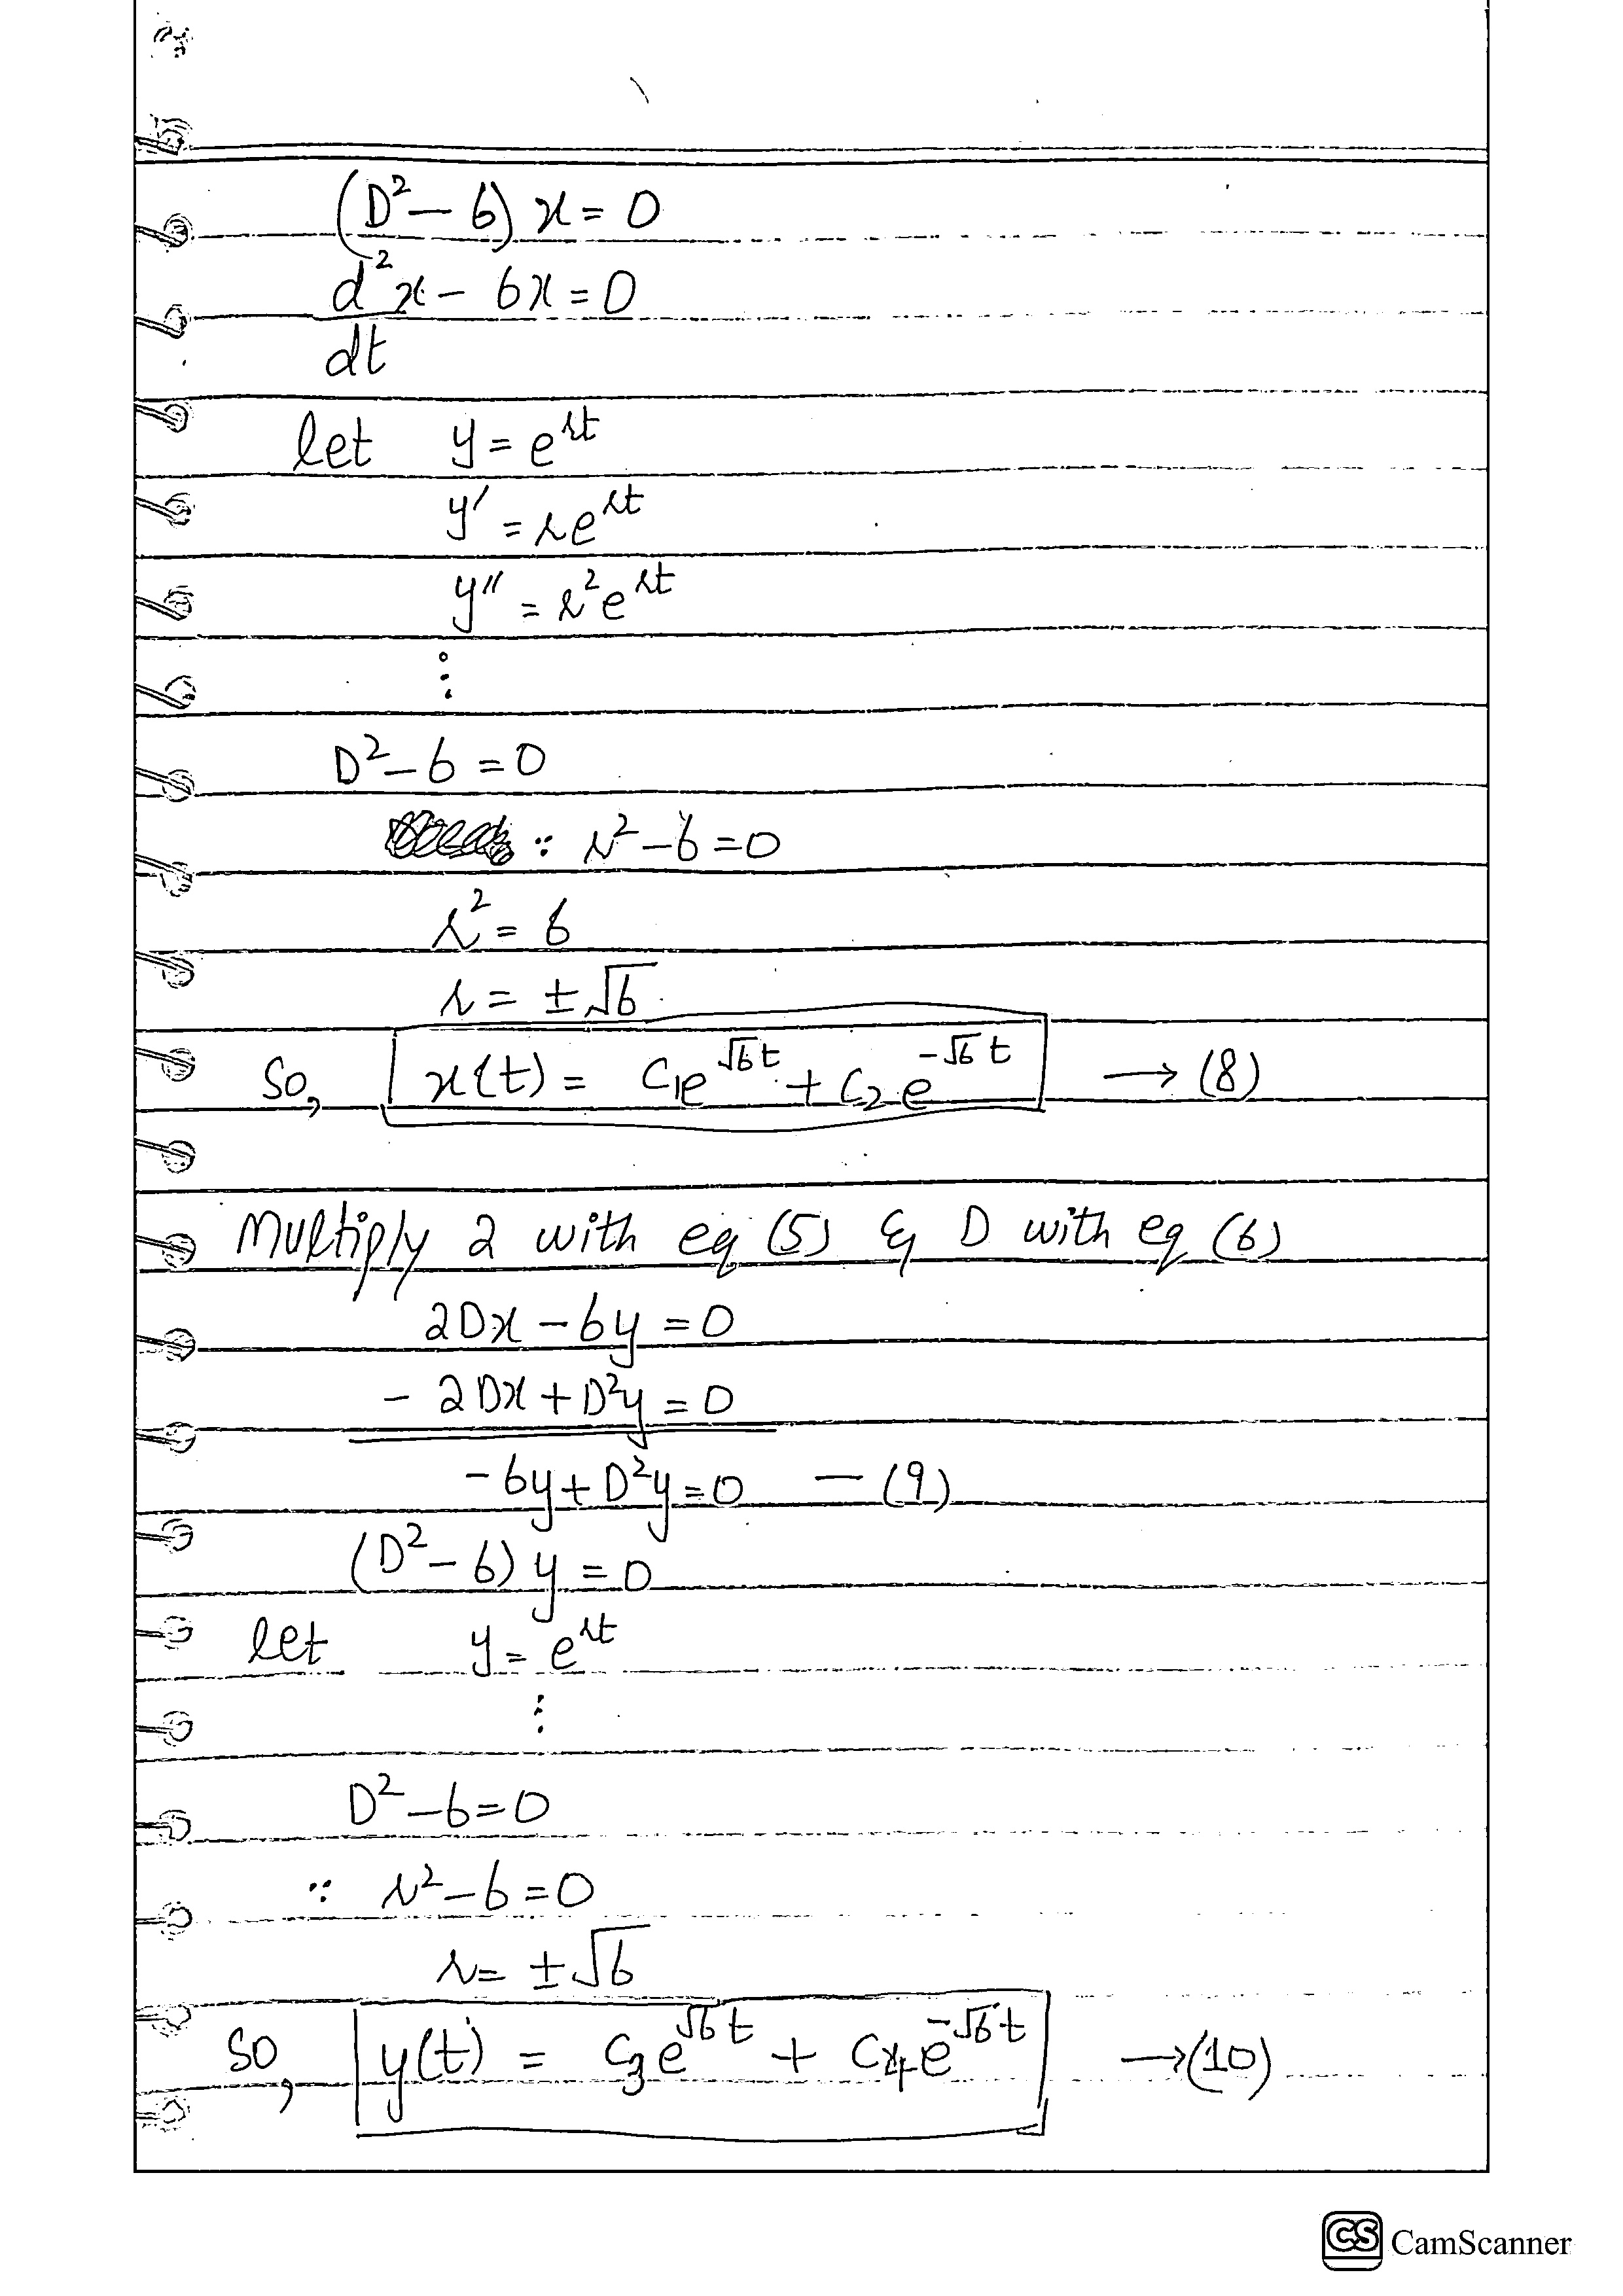 (D² – 6) x = 0
d²x – 6x = 0
dt
let y = e^rt
y' = re^rt
y'' = r²e^rt
⋮
D² – 6 = 0
∵ r² – 6 = 0
r² = 6
r = ± √6
So, x(t) = C₁e^√6t + C₂e^-√6t → (8)
Multiply 2 with eq (5) & D with eq (6)
2Dx – 6y = 0
– 2Dx + D²y = 0
-6y + D²y = 0 — (9)
(D² – 6) y = 0
let y = e^rt
⋮
D² – 6 = 0
∵ r² – 6 = 0
r = ± √6
So, y(t) = C₃e^√6t + C₄e^-√6t → (10)
CS CamScanner